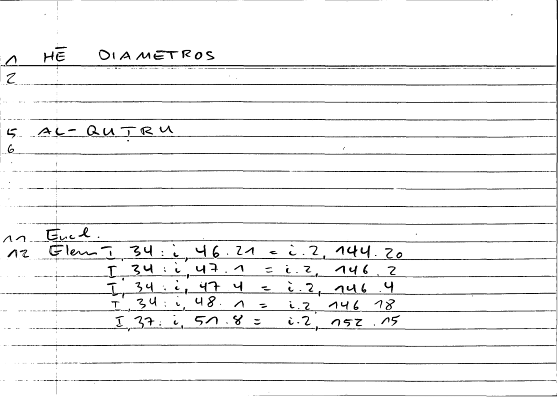 1 HĒ DIAMETROS
2
5 AL-QUṬRU
6
11 Eucl.
12 Elem I, 34: i, 46.21 = i.2, 144.20
I, 34: i, 47.1 = i.2, 146.2
I, 34: i, 47.4 = i.2, 146.4
I, 34: i, 48.1 = i.2, 146.18
I, 37: i, 51.8 = i.2, 152.15